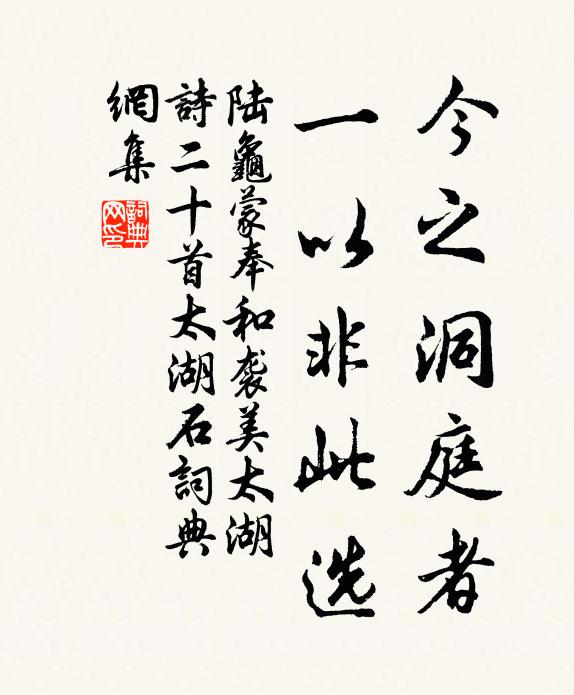 今之洞庭者
一以非此选
陆龜蒙奉和袭美太湖
詩二十首太湖石詞典
網集
詞典网印